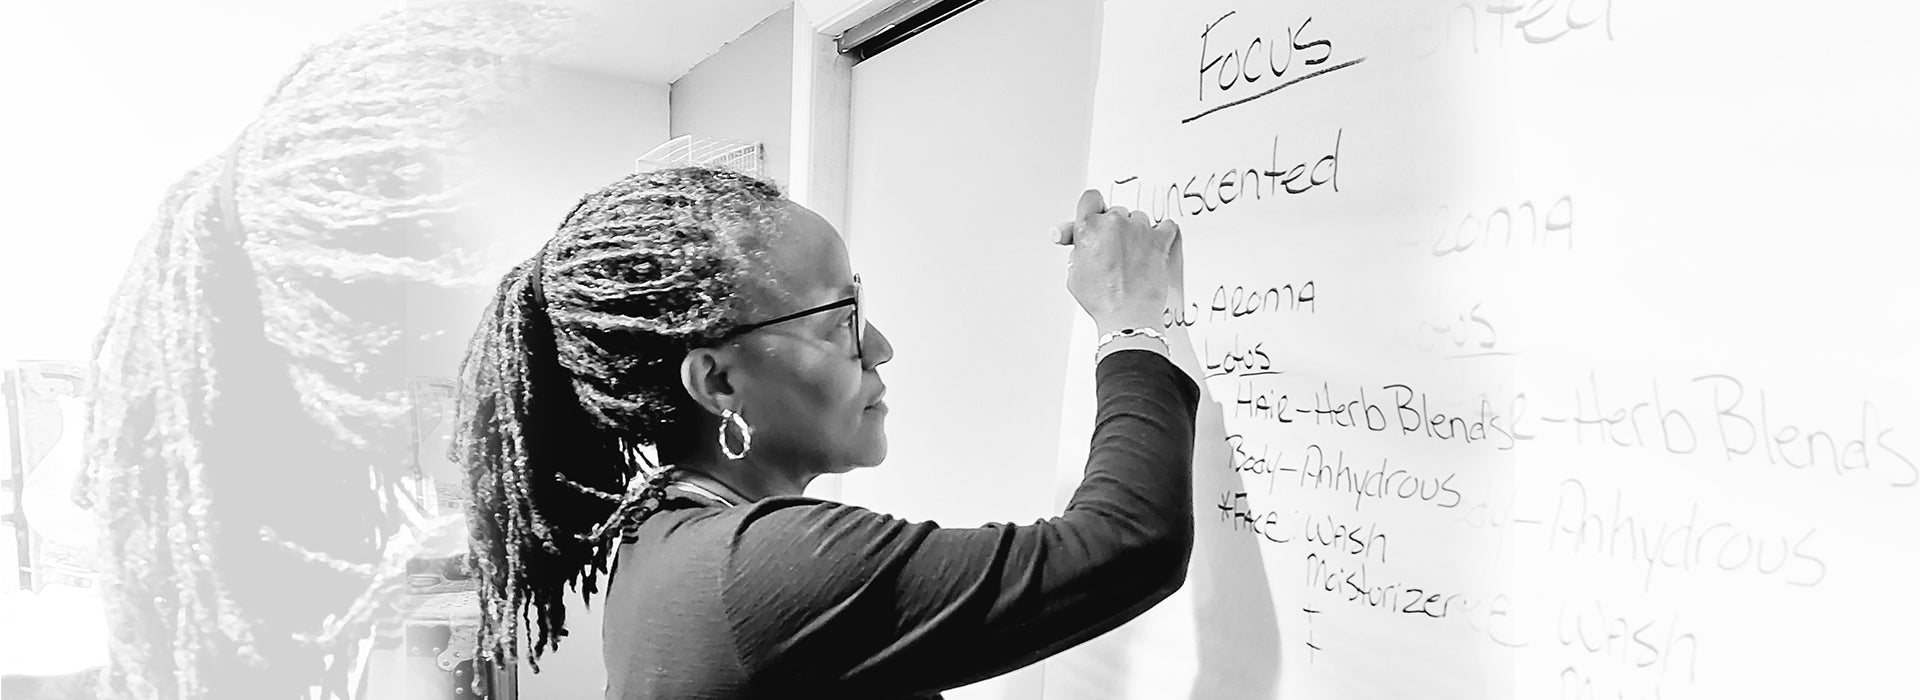 Focus
unscented
AROMA
Lotus
HAIR-Herb Blends
Body-Anhydrous
*FACE: WASH
Moisturizer